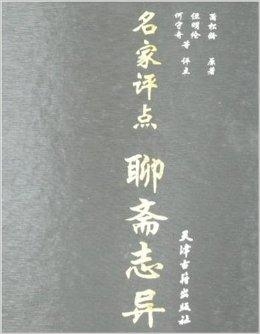 蒲松龄 原著
但明伦
何守奇 等 评点
名家评点
聊斋志异
天津古籍出版社